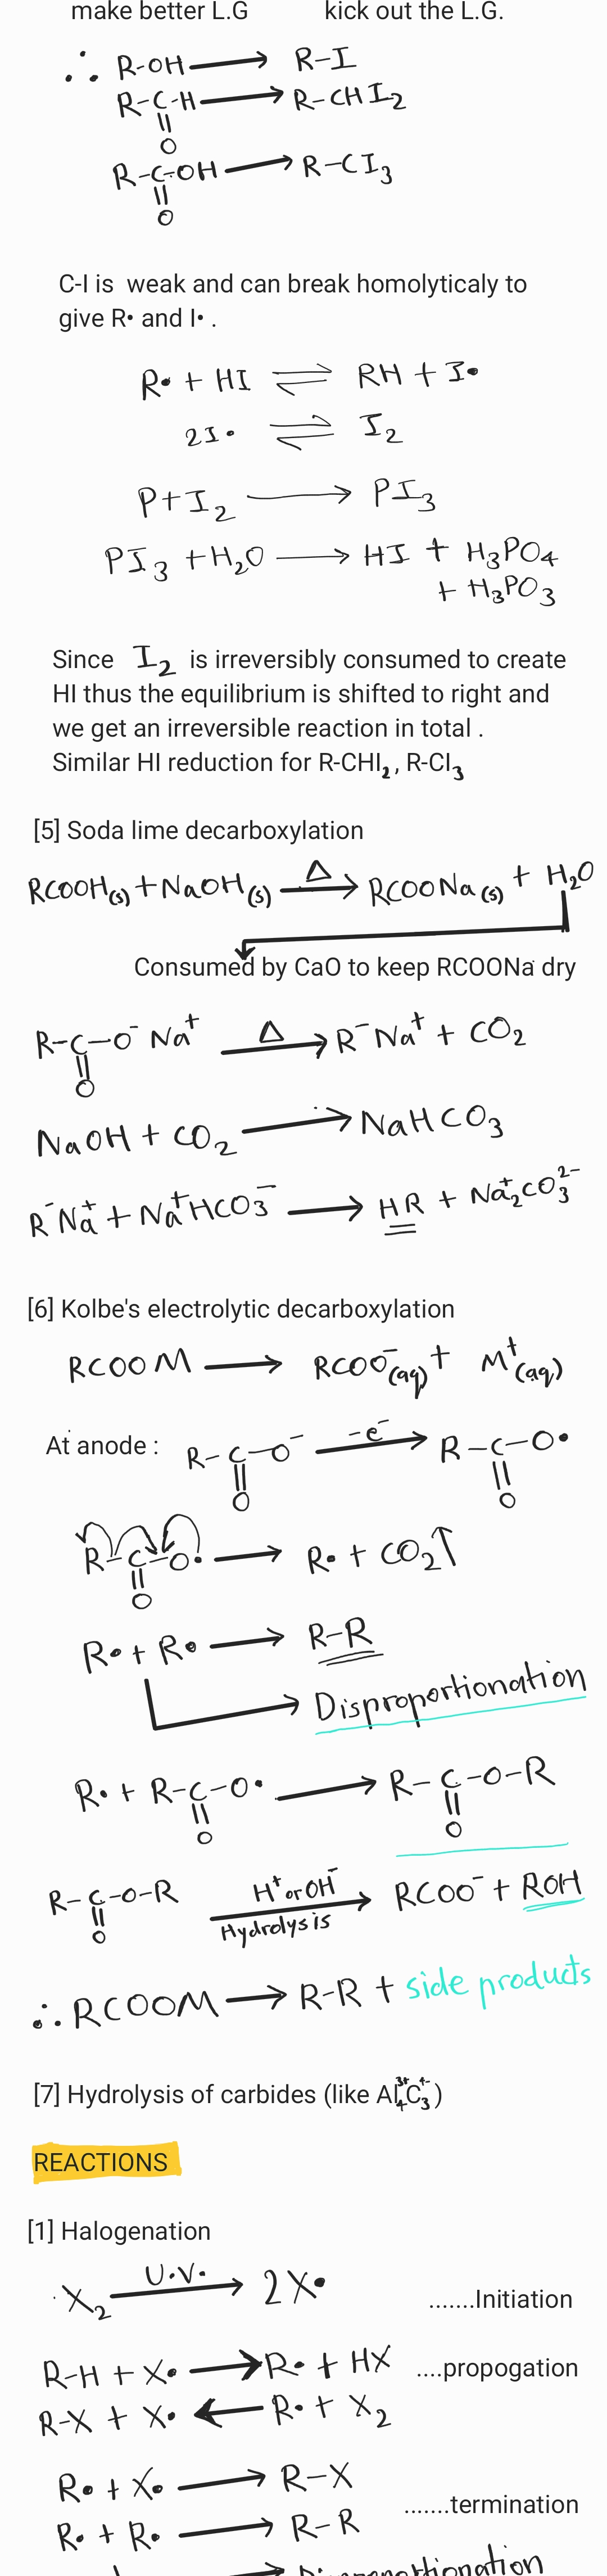 make better L.G kick out the L.G.
∴ R-OH → R-I
R-C-H → R-CHI₂
||
O
R-C-OH → R-CI₃
||
O
C-I is weak and can break homolyticaly to
give R• and I• .
R• + HI ⇌ RH + I•
2I• ⇌ I₂
P+I₂ → PI₃
PI₃ + H₂O → HI + H₃PO₄
+ H₃PO₃
Since I₂ is irreversibly consumed to create
HI thus the equilibrium is shifted to right and
we get an irreversible reaction in total .
Similar HI reduction for R-CHI₂, R-CI₃
[5] Soda lime decarboxylation
RCOOH(s) + NaOH(s) —Δ→ RCOONa(s) + H₂O
Consumed by CaO to keep RCOONa dry
R-C-O⁻ Na⁺ —Δ→ R⁻Na⁺ + CO₂
||
O
NaOH + CO₂ → NaHCO₃
R⁻Na⁺ + Na⁺HCO₃⁻ → HR + Na₂⁺CO₃²⁻
[6] Kolbe's electrolytic decarboxylation
RCOOM → RCOO⁻(aq) + M⁺(aq)
At anode : R-C-O⁻ —-e⁻→ R-C-O•
|| ||
O O
R-C-O• → R• + CO₂↑
||
O
R• + R• → R-R
→ Disproportionation
R• + R-C-O• → R-C-O-R
|| ||
O O
R-C-O-R —H⁺ or OH⁻→ RCOO⁻ + ROH
|| Hydrolysis
O
∴ RCOOM → R-R + side products
[7] Hydrolysis of carbides (like Al₄³⁺C₃⁴⁻)
REACTIONS
[1] Halogenation
X₂ —U.V.→ 2X• .......Initiation
R-H + X• → R• + HX ....propogation
R-X + X• ← R• + X₂
R• + X• → R-X
.......termination
R• + R• → R-R
→ Disproportionation